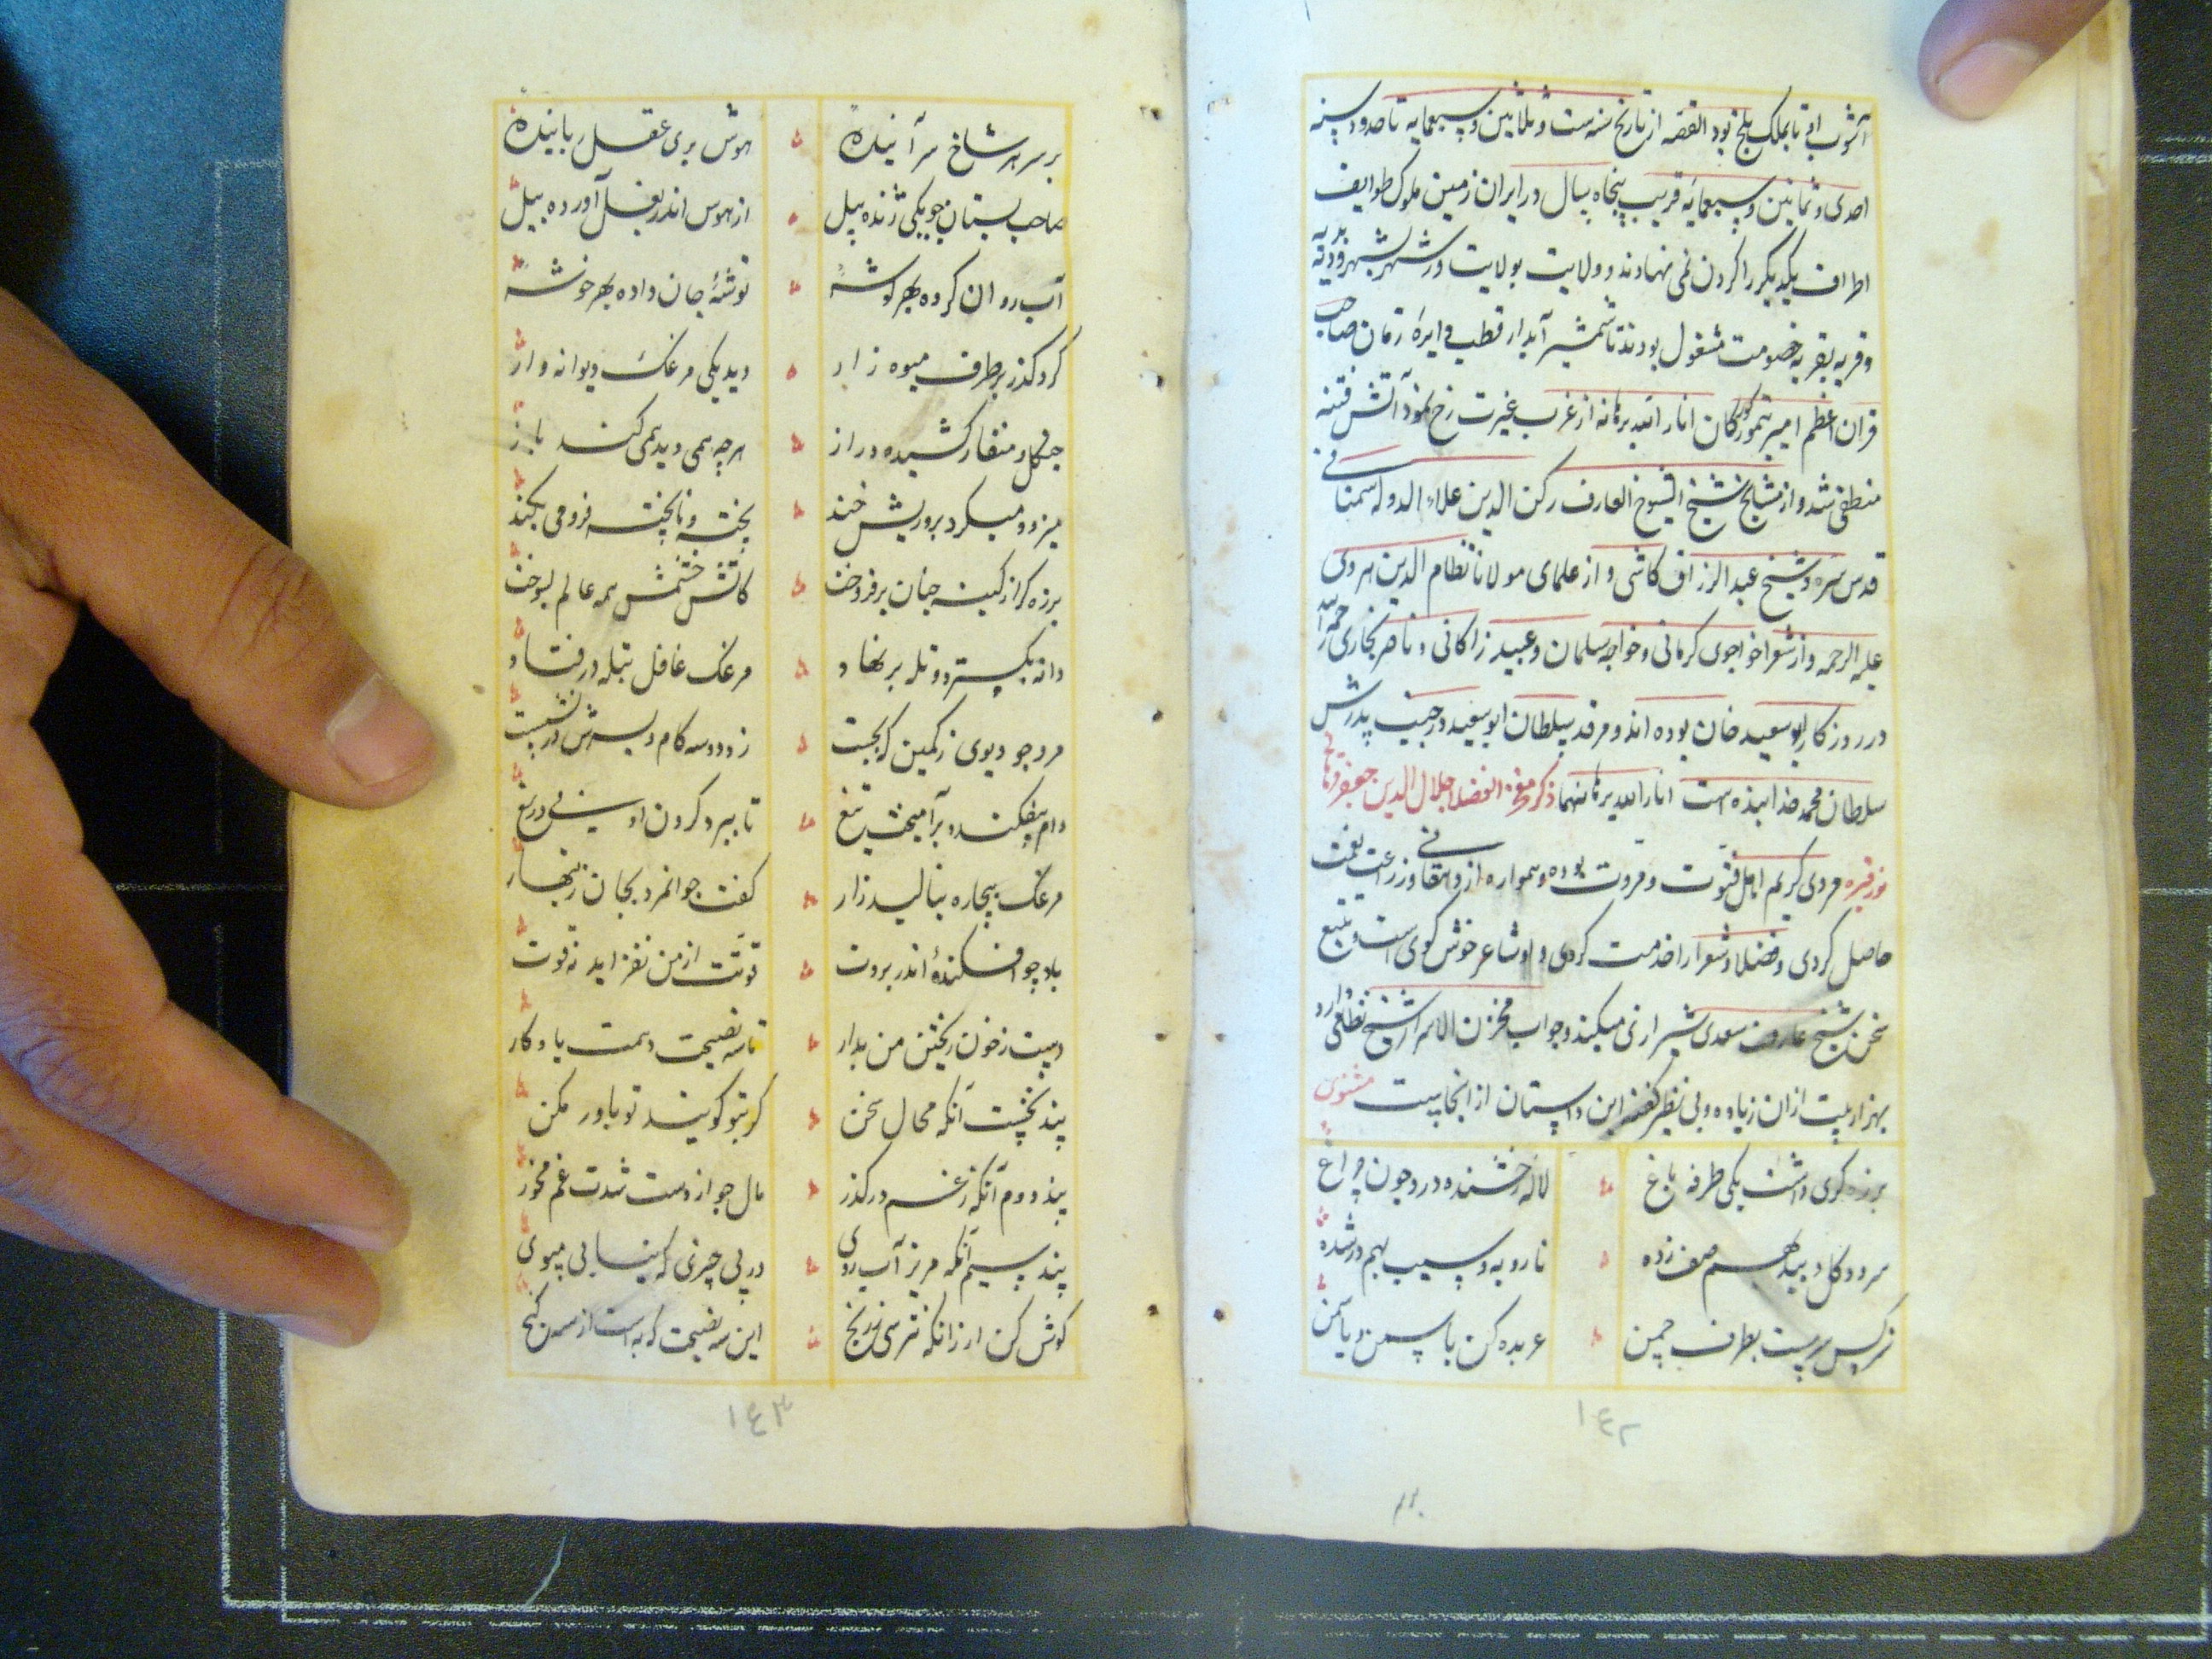 آشوب او تا بملک بلخ بود القصه از تاریخ سنه ست و ثلاثین و سبعمایه تا حدود سنه
احدی و ثمانین و سبعمایه قریب پنجاه سال در ایران زمین ملوک طوایف
اطراف یکدیگر را کردن نمی نهادند و ولایت بولایت و شهر بشهر و دیه بدیه
و قریه بقریه بخصومت مشغول بودند تا شمشیر آبدار قطب دایره زمان صاحب
قران اعظم امیر تیمور کورکان انار الله برهانه از غرب غیرت رخ نمود آتش فتنه
منطفی شد و از مشایخ شیخ الشیوخ العارف رکن الدین علاء الدوله سمنانی
قدس سره و شیخ عبد الرزاق کاشی و از علمای مولانا نظام الدین هروی
علیه الرحمه و از شعرا خواجوی کرمانی و خواجه سلمان و عبید زاکانی و ناصر بخاری رحمه الله
در روزکار ابو سعید خان بوده اند و مرقد سلطان ابو سعید در جنب پدرش
سلطان محمد خدابنده است انار الله برهانهما ذکر مفخر الفضلا جلال الدین جعفر فراهانی
نور قبره مردی کریم اهل فتوت و مروت بوده و همواره از دهقانی و زراعت نعمت
حاصل کردی و فضلا و شعرا را خدمت کردی و او شاعر خوش کوی است و تتبع
سخن شیخ عارف سعدی شیرازی میکند و جواب مخزن الاسرار شیخ نظامی دارد
بهزار بیت از ان زیاده و بی نظیر کفته این داستان از انجاست مثنوی
برزه کری داشت یکی طرفه باغ لاله رخشنده در و چون چراغ
سرو و کل و بید بهم صف زده نار و به و سیب بهم در شده
نرکس سرمست بطرف چمن عربده کن با سمن و یاسمن
١٤٢
بر سر هر شاخ سراینده هوش بری عقل ربایندهٔ
صاحب بستان چو یکی ژنده پیل از هوس اندر بغل آورده بیل
آب روان کرده بهر کوشهٔ توشهٔ جان داده بهر خوشهٔ
کرد کذر بر طرف میوه زار دید یکی مرغک دیوانه وار
چنکل و منقار کشیده دراز هرچه همی دید همی کند باز
میزد و میکرد بر و ریش خند پخته و ناپخته فرو می بکند
برزه کر از کینه چنان برفروخت کاتش خشمش همه عالم بسوخت
دانه بکسترد و تله بر نهاد مرغک غافل بتله در فتاد
مرد چو دیوی ز کمین که بجست زد دو سه کام و بسرش در نشست
دام بیفکند و برآمیخت تیغ تا ببرد کردن او بی دریغ
مرغک بیچاره بنالید زار کفت جوانمرد بجان زینهار
باد چو افکندهٔ اندر بروت قوتت از من نفزاید نه قوت
دست ز خون ریختن من بدار تا سه نصیحت دهمت یادکار
پند نخست آنکه محال سخن کر بتو کویند تو باور مکن
پند دوم آنکه ز غم در کذر مال چو از دست شدت غم مخور
پند سیم آنکه مریز آب روی در پی چیزی که نیابی مپوی
کوش کن ار زانکه نترسی ز رنج این سه نصیحت که به است از سه کنج
١٤٣